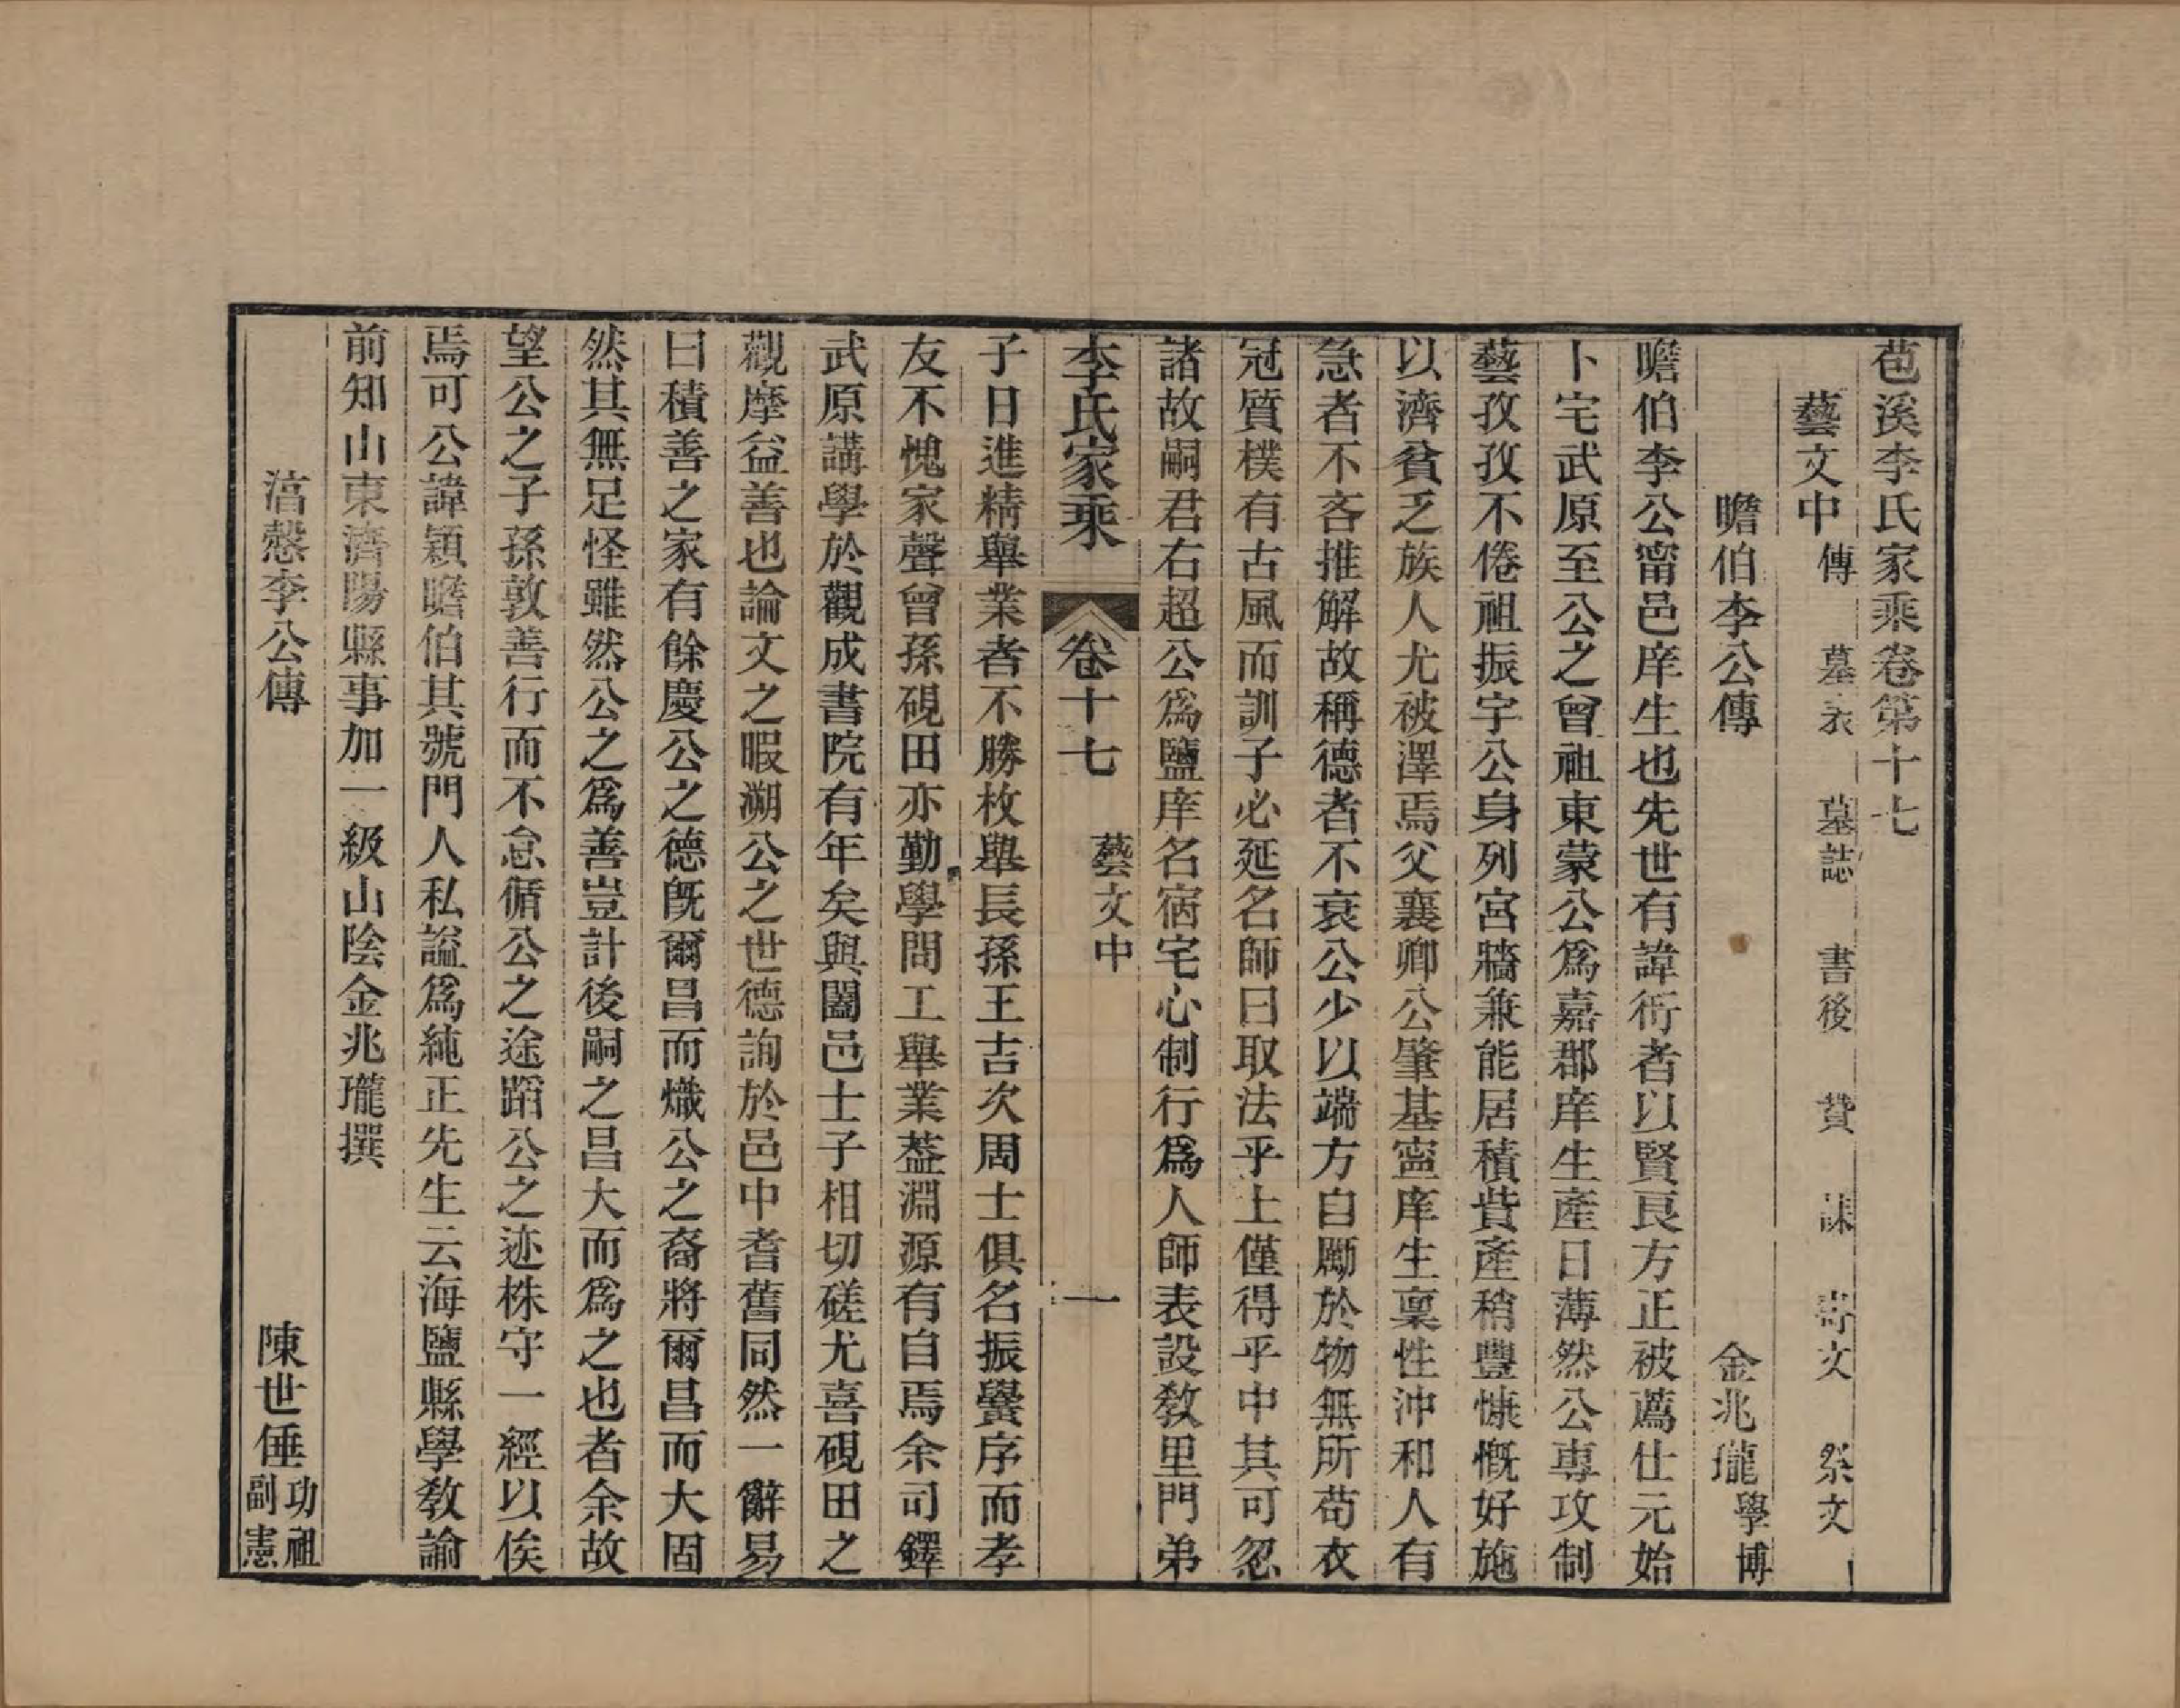 苞溪李氏家乘卷第十七
藝文中 傳 墓表 墓誌 書後 贊 誄 壽文 祭文
瞻伯李公傳 金兆瓏 學博
瞻伯李公甯邑庠生也先世有諱衎者以賢良方正被薦仕元始
卜宅武原至公之曾祖東蒙公爲嘉郡庠生產日薄然公專攻制
藝孜孜不倦祖振宇公身列宮牆兼能居積貲產稍豐慷慨好施
以濟貧乏族人尤被澤焉父襄卿公肇基寍庠生稟性沖和人有
急者不吝推解故稱德者不衰公少以端方自勵於物無所苟衣
冠質樸有古風而訓子必延名師曰取法乎上僅得乎中其可忽
諸故嗣君右超公爲鹽庠名宿宅心制行爲人師表設敎里門弟
李氏家乘 卷十七 藝文中 一
子日進精舉業者不勝枚舉長孫王吉次周士俱名振黌序而孝
友不愧家聲曾孫硯田亦勤學問工舉業蓋淵源有自焉余司鐸
武原講學於觀成書院有年矣與闔邑士子相切磋尤喜硯田之
觀摩益善也論文之暇溯公之世德詢於邑中耆舊同然一辭易
曰積善之家有餘慶公之德旣爾昌而熾公之裔將爾昌而大固
然其無足怪雖然公之爲善豈計後嗣之昌大而爲之也者余故
望公之子孫敦善行而不怠循公之途蹈公之迹株守一經以俟
焉可公諱穎瞻伯其號門人私謚爲純正先生云海鹽縣學敎諭
前知山東濟陽縣事加一級山陰金兆瓏撰
湻慤李公傳 陳世倕 功祖副憲